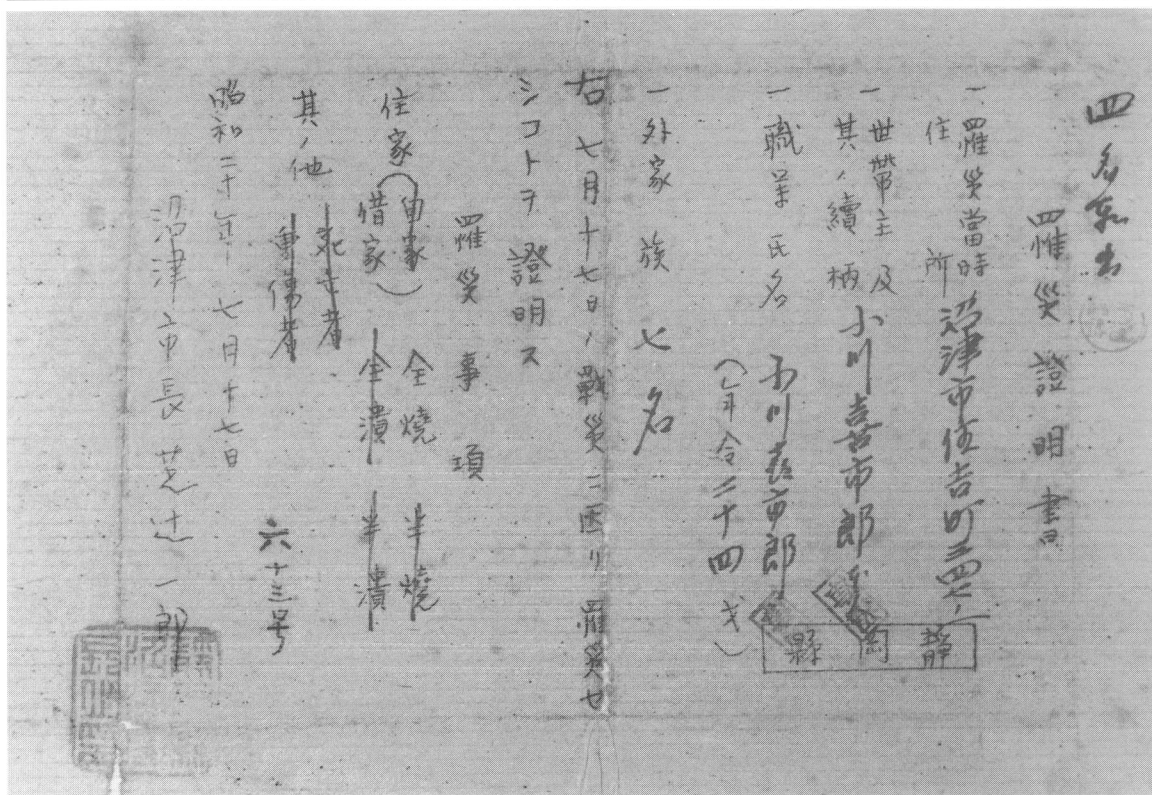 四名転出
罹災證明書
一 罹災當時
住所
沼津市住吉町三四七ノ一
一 世帯主及
其ノ續柄
小川喜市郎
一 職業氏名
小川喜市郎
(年令二十四才)
一 外家族 七名
右 七月十七日ノ戰災ニ因リ罹災セ
シコトヲ證明ス
罹災事項
住家(自家) 全燒 半燒
借家 全潰 半潰
其ノ他 死亡者
重傷者
六十三号
昭和二十年 七月十七日
沼津市長 芝辻一郎
靜岡縣